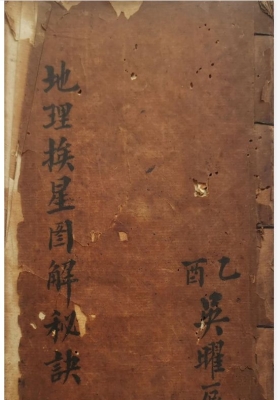 地理挨星图解秘訣
乙酉
吳曜